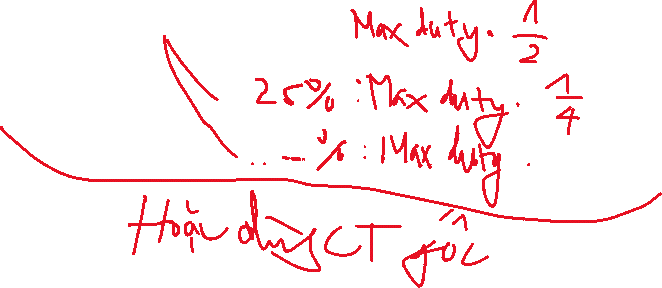 Max duty. 1/2
25% : Max duty. 1/4
.. -% : Max duty.
Hoặc dùng CT gốc